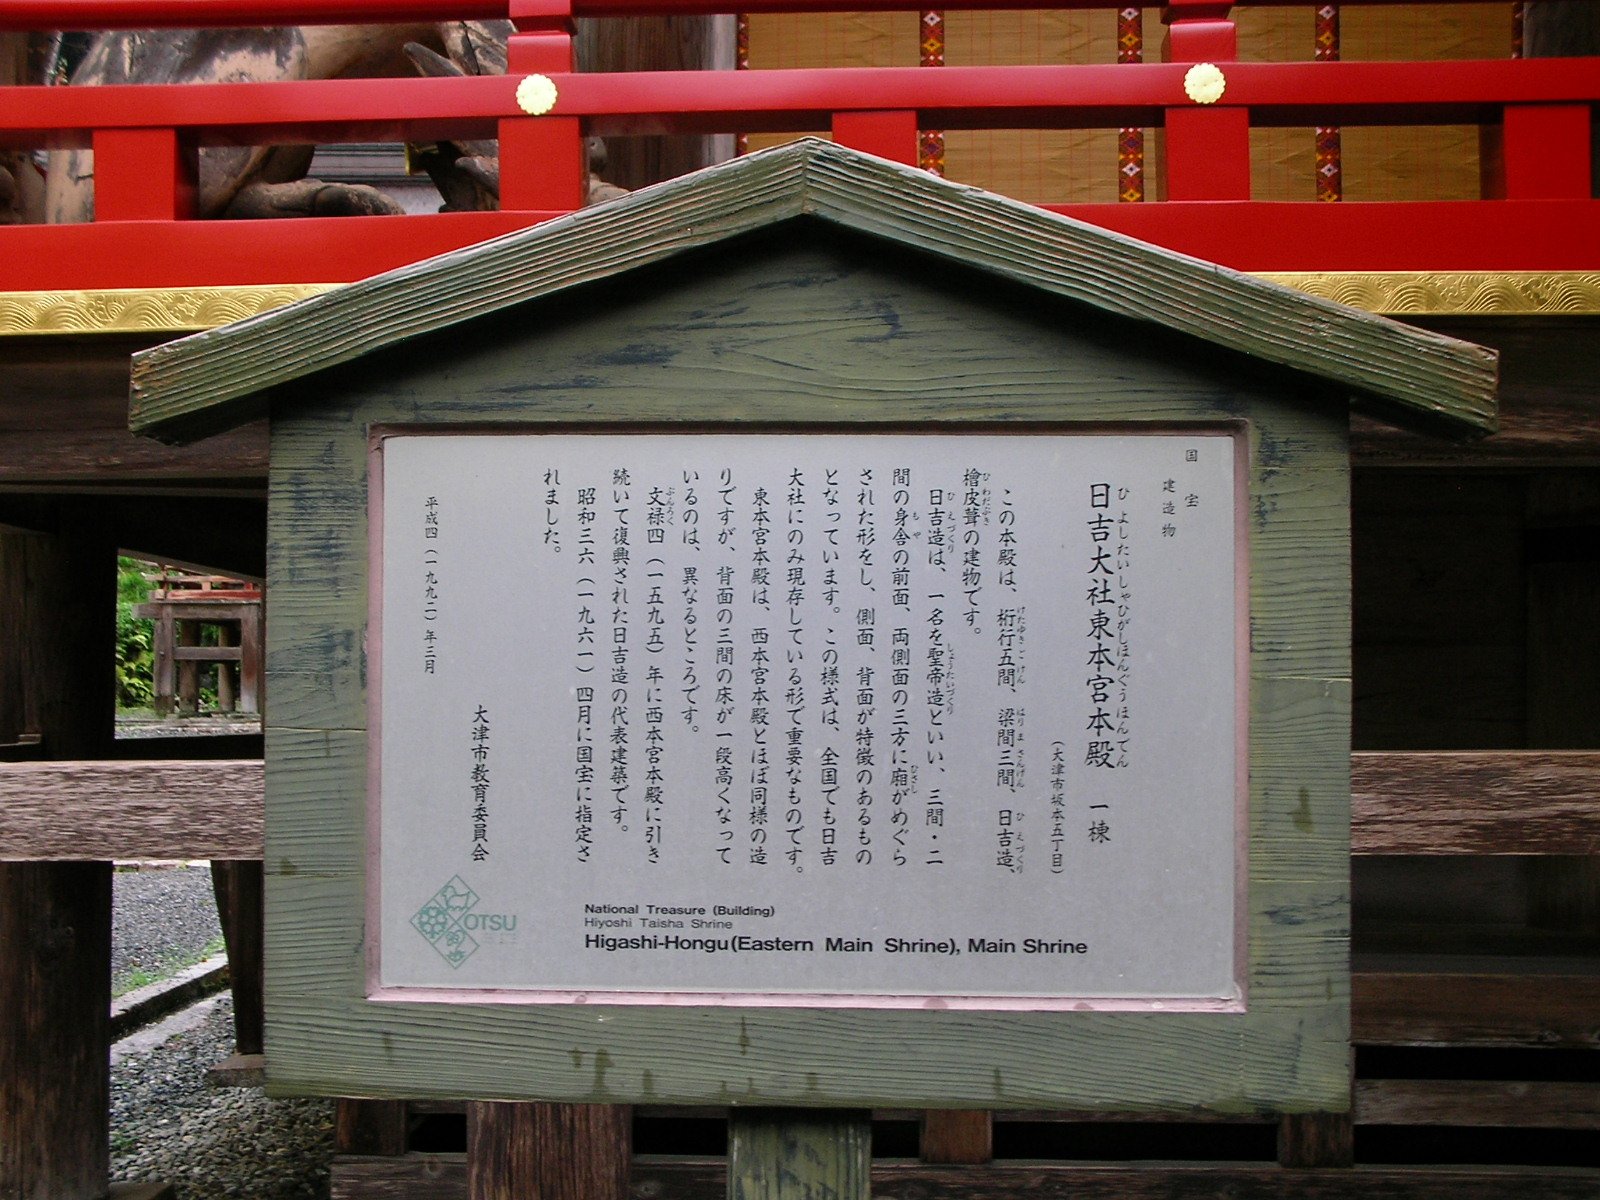 国宝
建造物
日吉大社東本宮本殿 一棟
ひよしたいしゃひがしほんぐうほんでん
（大津市坂本五丁目）
この本殿は、桁行五間、梁間三間、日吉造、
けたゆきごけん はりまさんげん ひえづくり
檜皮葺の建物です。
ひわだぶき
日吉造は、一名を聖帝造といい、三間・二
ひえづくり しょうたいづくり
間の身舎の前面、両側面の三方に廂がめぐら
もや ひさし
された形をし、側面、背面が特徴のあるもの
となっています。この様式は、全国でも日吉
大社にのみ現存している形で重要なものです。
東本宮本殿は、西本宮本殿とほぼ同様の造
りですが、背面の三間の床が一段高くなって
いるのは、異なるところです。
文禄四（一五九五）年に西本宮本殿に引き
ぶんろく
続いて復興された日吉造の代表建築です。
昭和三六（一九六一）四月に国宝に指定さ
れました。
大津市教育委員会
平成四（一九九二）年三月
National Treasure (Building)
Hiyoshi Taisha Shrine
Higashi-Hongu(Eastern Main Shrine), Main Shrine
OTSU